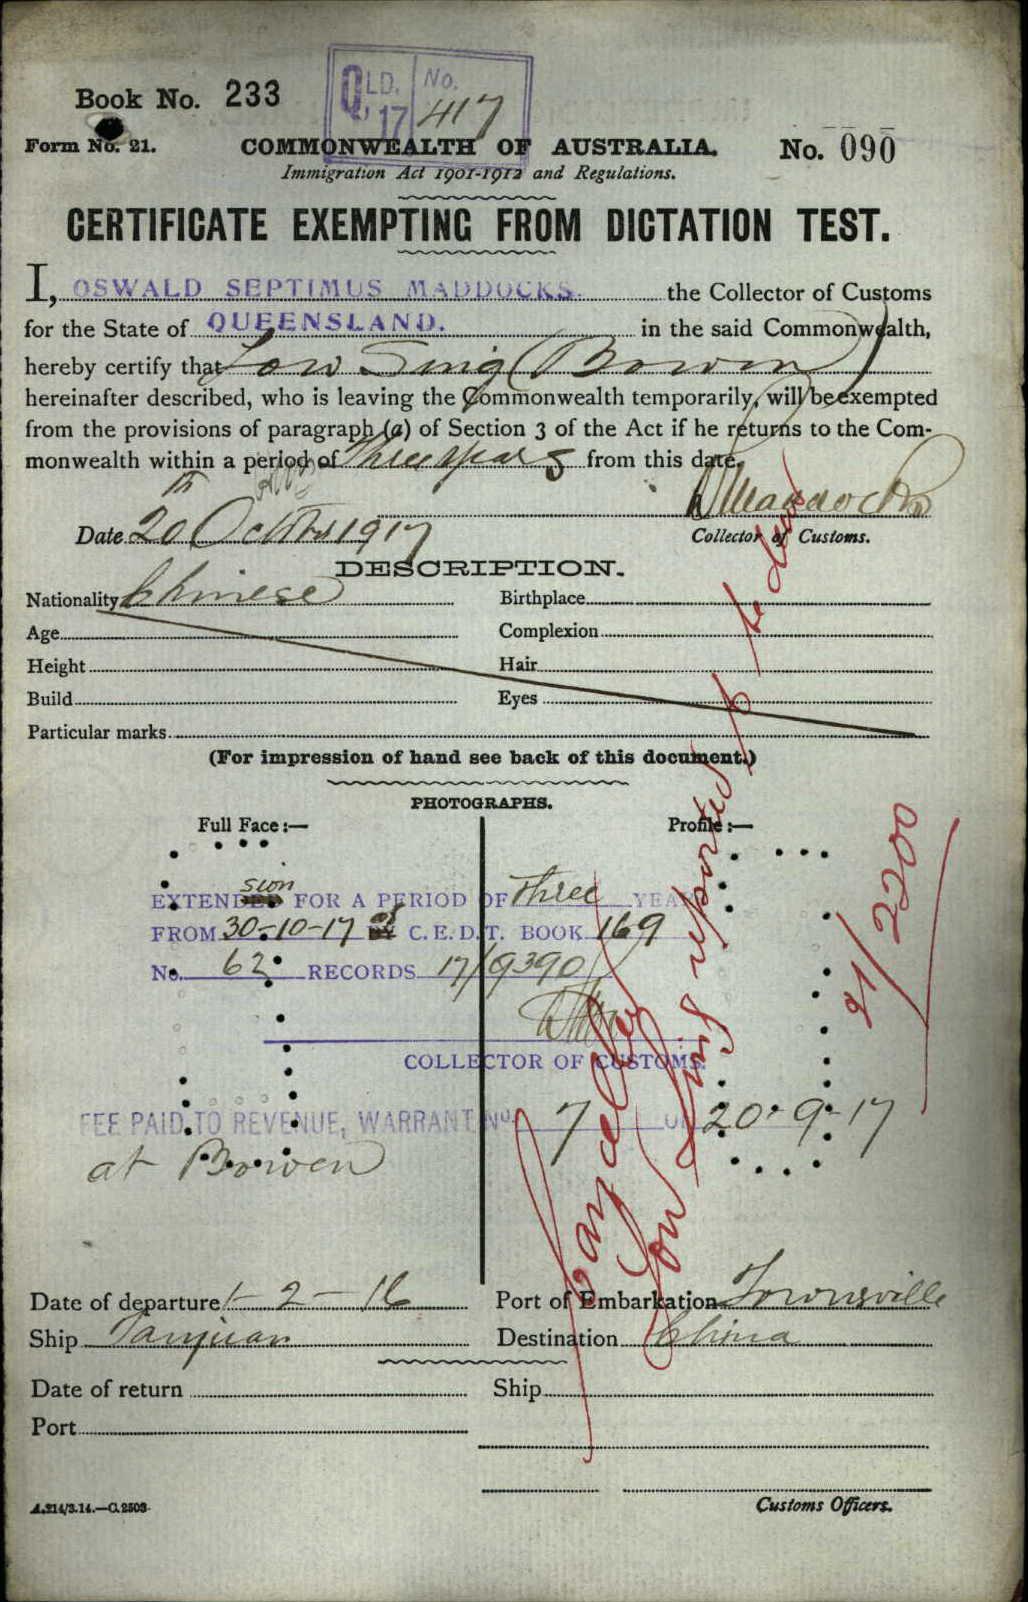 QLD. No.
'17 417
Book No. 233
Form No. 21. COMMONWEALTH OF AUSTRALIA. No. 090
Immigration Act 1901-1912 and Regulations.
CERTIFICATE EXEMPTING FROM DICTATION TEST.
I, OSWALD SEPTIMUS MADDOCKS. the Collector of Customs
for the State of QUEENSLAND. in the said Commonwealth,
hereby certify that Low Sing (Bowen)
hereinafter described, who is leaving the Commonwealth temporarily, will be exempted
from the provisions of paragraph (a) of Section 3 of the Act if he returns to the Com-
monwealth within a period of Three years from this date.
Date 20th October 1917 Collector of Customs.
DESCRIPTION.
Nationality Chinese Birthplace
Age Complexion
Height Hair
Build Eyes
Particular marks
(For impression of hand see back of this document.)
PHOTOGRAPHS.
Full Face:— Profile:—
sion
EXTENDED FOR A PERIOD OF Three YEARS
FROM 30-10-17 of C.E.D.T. BOOK 169
No. 62 RECORDS 17/9390
COLLECTOR OF CUSTOMS.
FEE PAID TO REVENUE, WARRANT No. 7 OF 20-9-17
at Bowen
Cancelled
Low Sing reported to be dead
21/2200
Date of departure 1-2-16 Port of Embarkation Townsville
Ship Taiyuan Destination China
Date of return Ship
Port
A.214/3.14.—C.2503. Customs Officers.